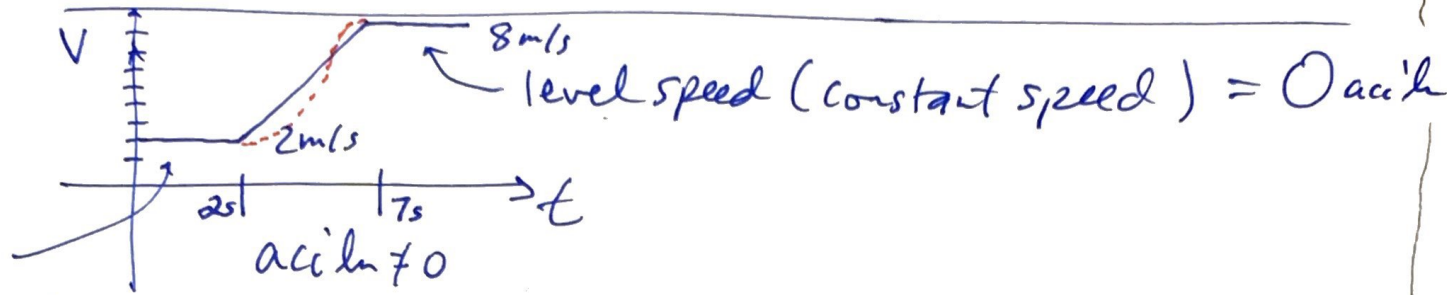 V
8m/s
level speed (constant speed) = 0 acc'ln
2m/s
2s
7s
t
acc'ln ≠ 0